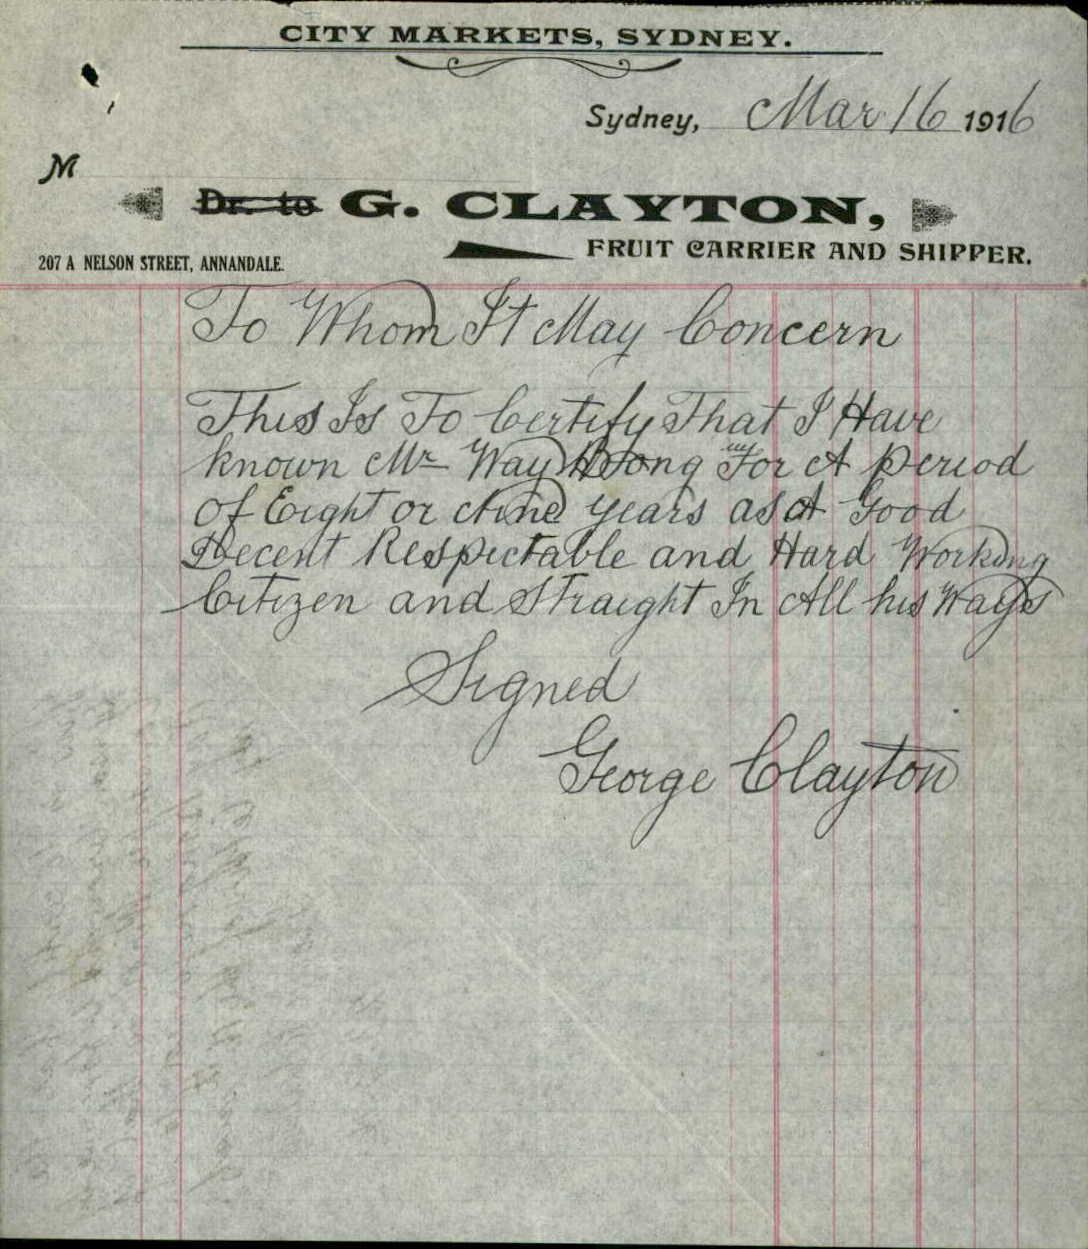 CITY MARKETS, SYDNEY.
Sydney, Mar 16 1916
M
Dr. to G. CLAYTON,
FRUIT CARRIER AND SHIPPER.
207 A NELSON STREET, ANNANDALE.
To Whom It May Concern
This Is To Certify That I Have
known Mr Way Hong For A Period
Of Eight or Nine years as A Good
Decent Respectable and Hard Working
Citizen and Straight In All his Ways
Signed
George Clayton